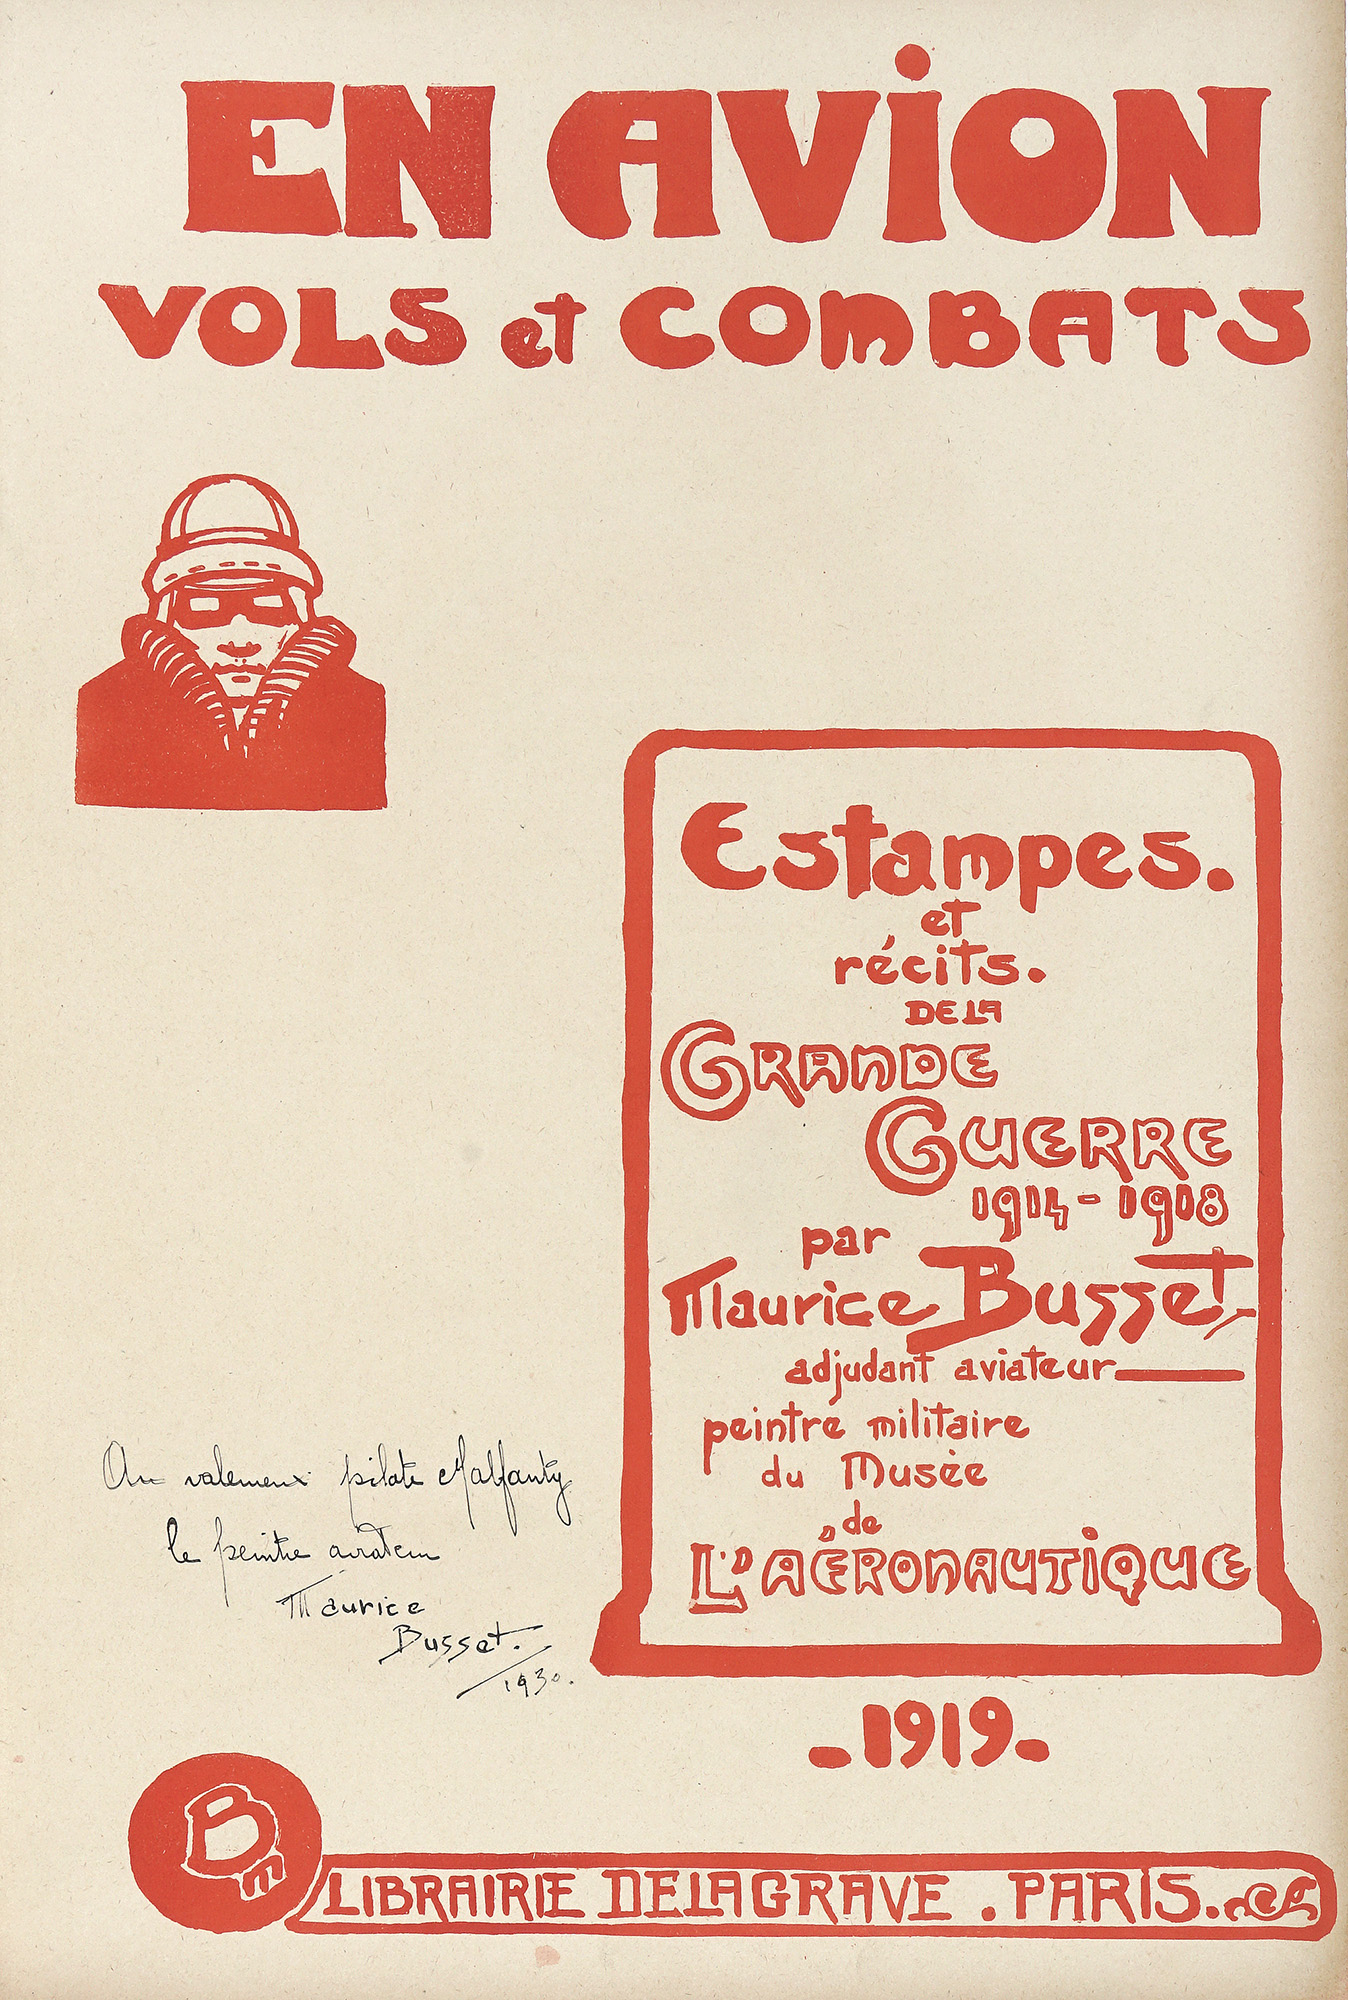 EN AVION
VOLS et COMBATS
Estampes.
et
récits.
DE LA
GRANDE
GUERRE
1914-1918
par
Maurice Busset
adjudant aviateur
peintre militaire
du Musée
de
L'AÉRONAUTIQUE
Au valeureux pilote
le peintre aviateur
Maurice
Busset.
1930.
-1919-
BM
LIBRAIRIE DELAGRAVE . PARIS.